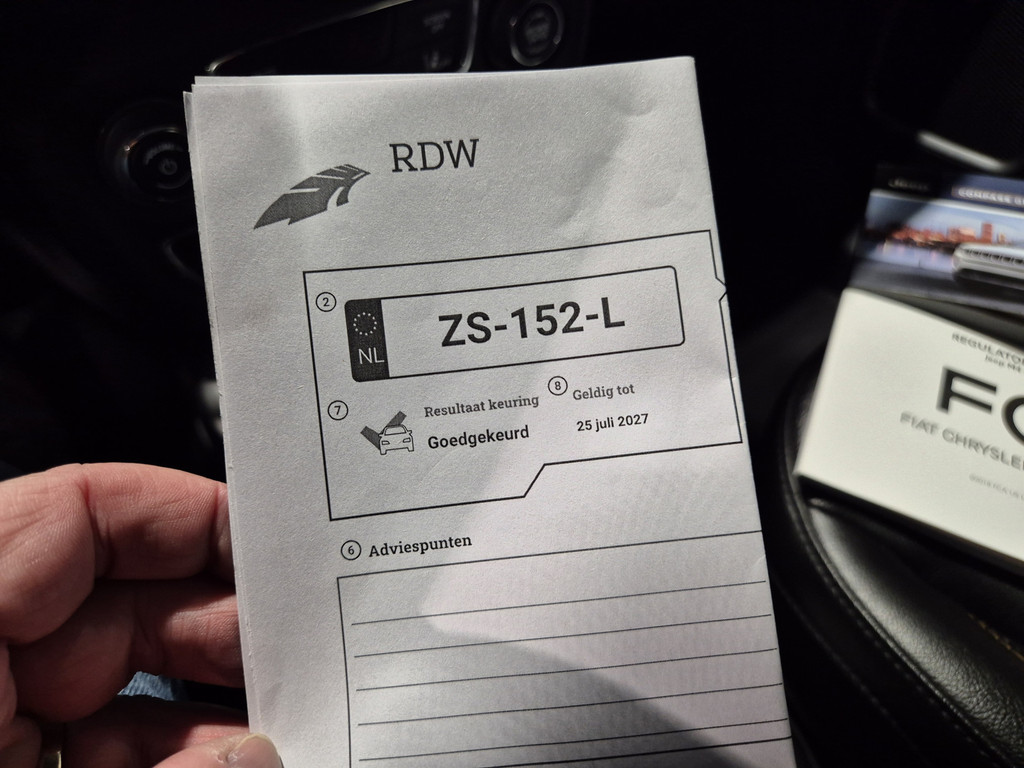 RDW
2
NL
ZS-152-L
7
Resultaat keuring
Goedgekeurd
8
Geldig tot
25 juli 2027
6 Adviespunten
REGULATO
FC
FIAT CHRYSLE